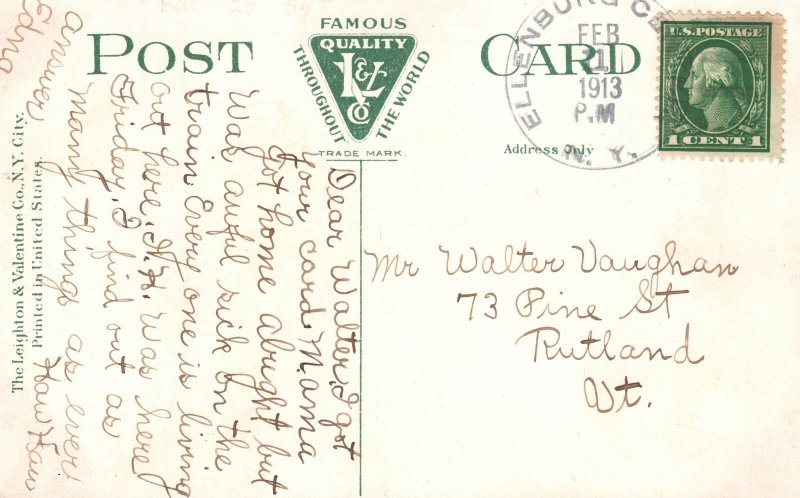 POST CARD
FAMOUS
QUALITY
L&V
Co
THROUGHOUT THE WORLD
TRADE MARK.
ELLENBURG
FEB
11
1913
P.M
N. Y.
U.S. POSTAGE
1 CENT 1
Address Only
Mr Walter Vaughan
73 Pine St
Rutland
Vt.
Dear Walter, I got
your card. Mama
got home abught but
was awful sick on the
train. Every one is living
out here. N.H. was here
Friday. I find out as
many things as ever
Haw Haw
answer
Edna
The Leighton & Valentine Co., N.Y. City.
Printed in United States.